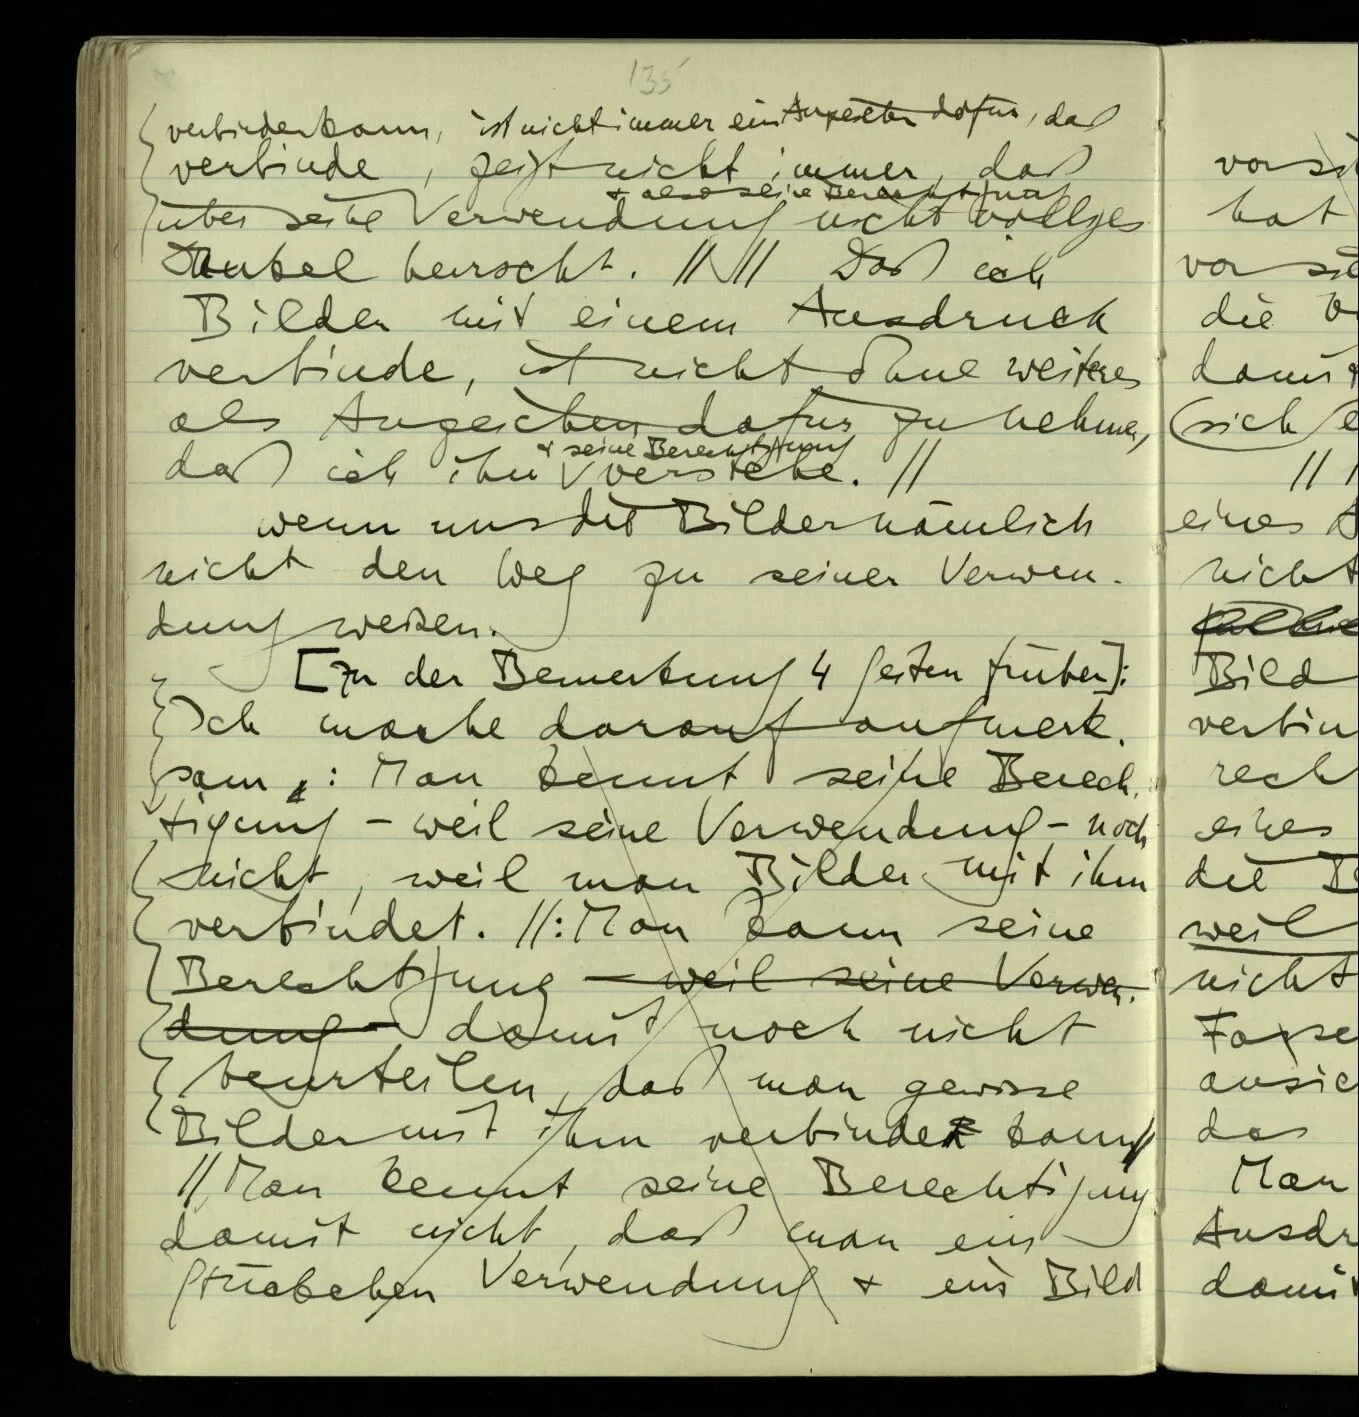 135
verbinden kann, ist nicht immer ein Anzeichen dafür, daß
verbinde, zeigt nicht immer, daß
+ also seine Berechtigung
über seine Verwendung nicht volles
Dunkel herrscht. // // Daß ich
Bilder mit einem Ausdruck
verbinde, ist nicht ohne weiteres
als Anzeichen dafür zu nehmen,
+ seine Berechtigung
daß ich ihn verstehe. //
wenn uns die Bilder nämlich
nicht den Weg zu seiner Verwen-
dung weisen.
[Zu der Bemerkung 4 Seiten früher]:
Ich mache darauf aufmerk-
sam: Man kennt seine Berech-
tigung – weil seine Verwendung – noch
nicht, weil man Bilder mit ihm
verbindet. //: Man kann seine
Berechtigung – weil seine Verwen-
dung – damit noch nicht
beurteilen, daß man gewisse
Bilder mit ihm verbinden kann
// Man kennt seine Berechtigung
damit nicht, daß man ein
Stückchen Verwendung + ein Bild
vorsi
hat
vor se
die
damit
(sich
//
eines
nicht
Bild
verbin
rech
eines
die B
weil
nicht
ansic
das
Man
Ausdr
damit